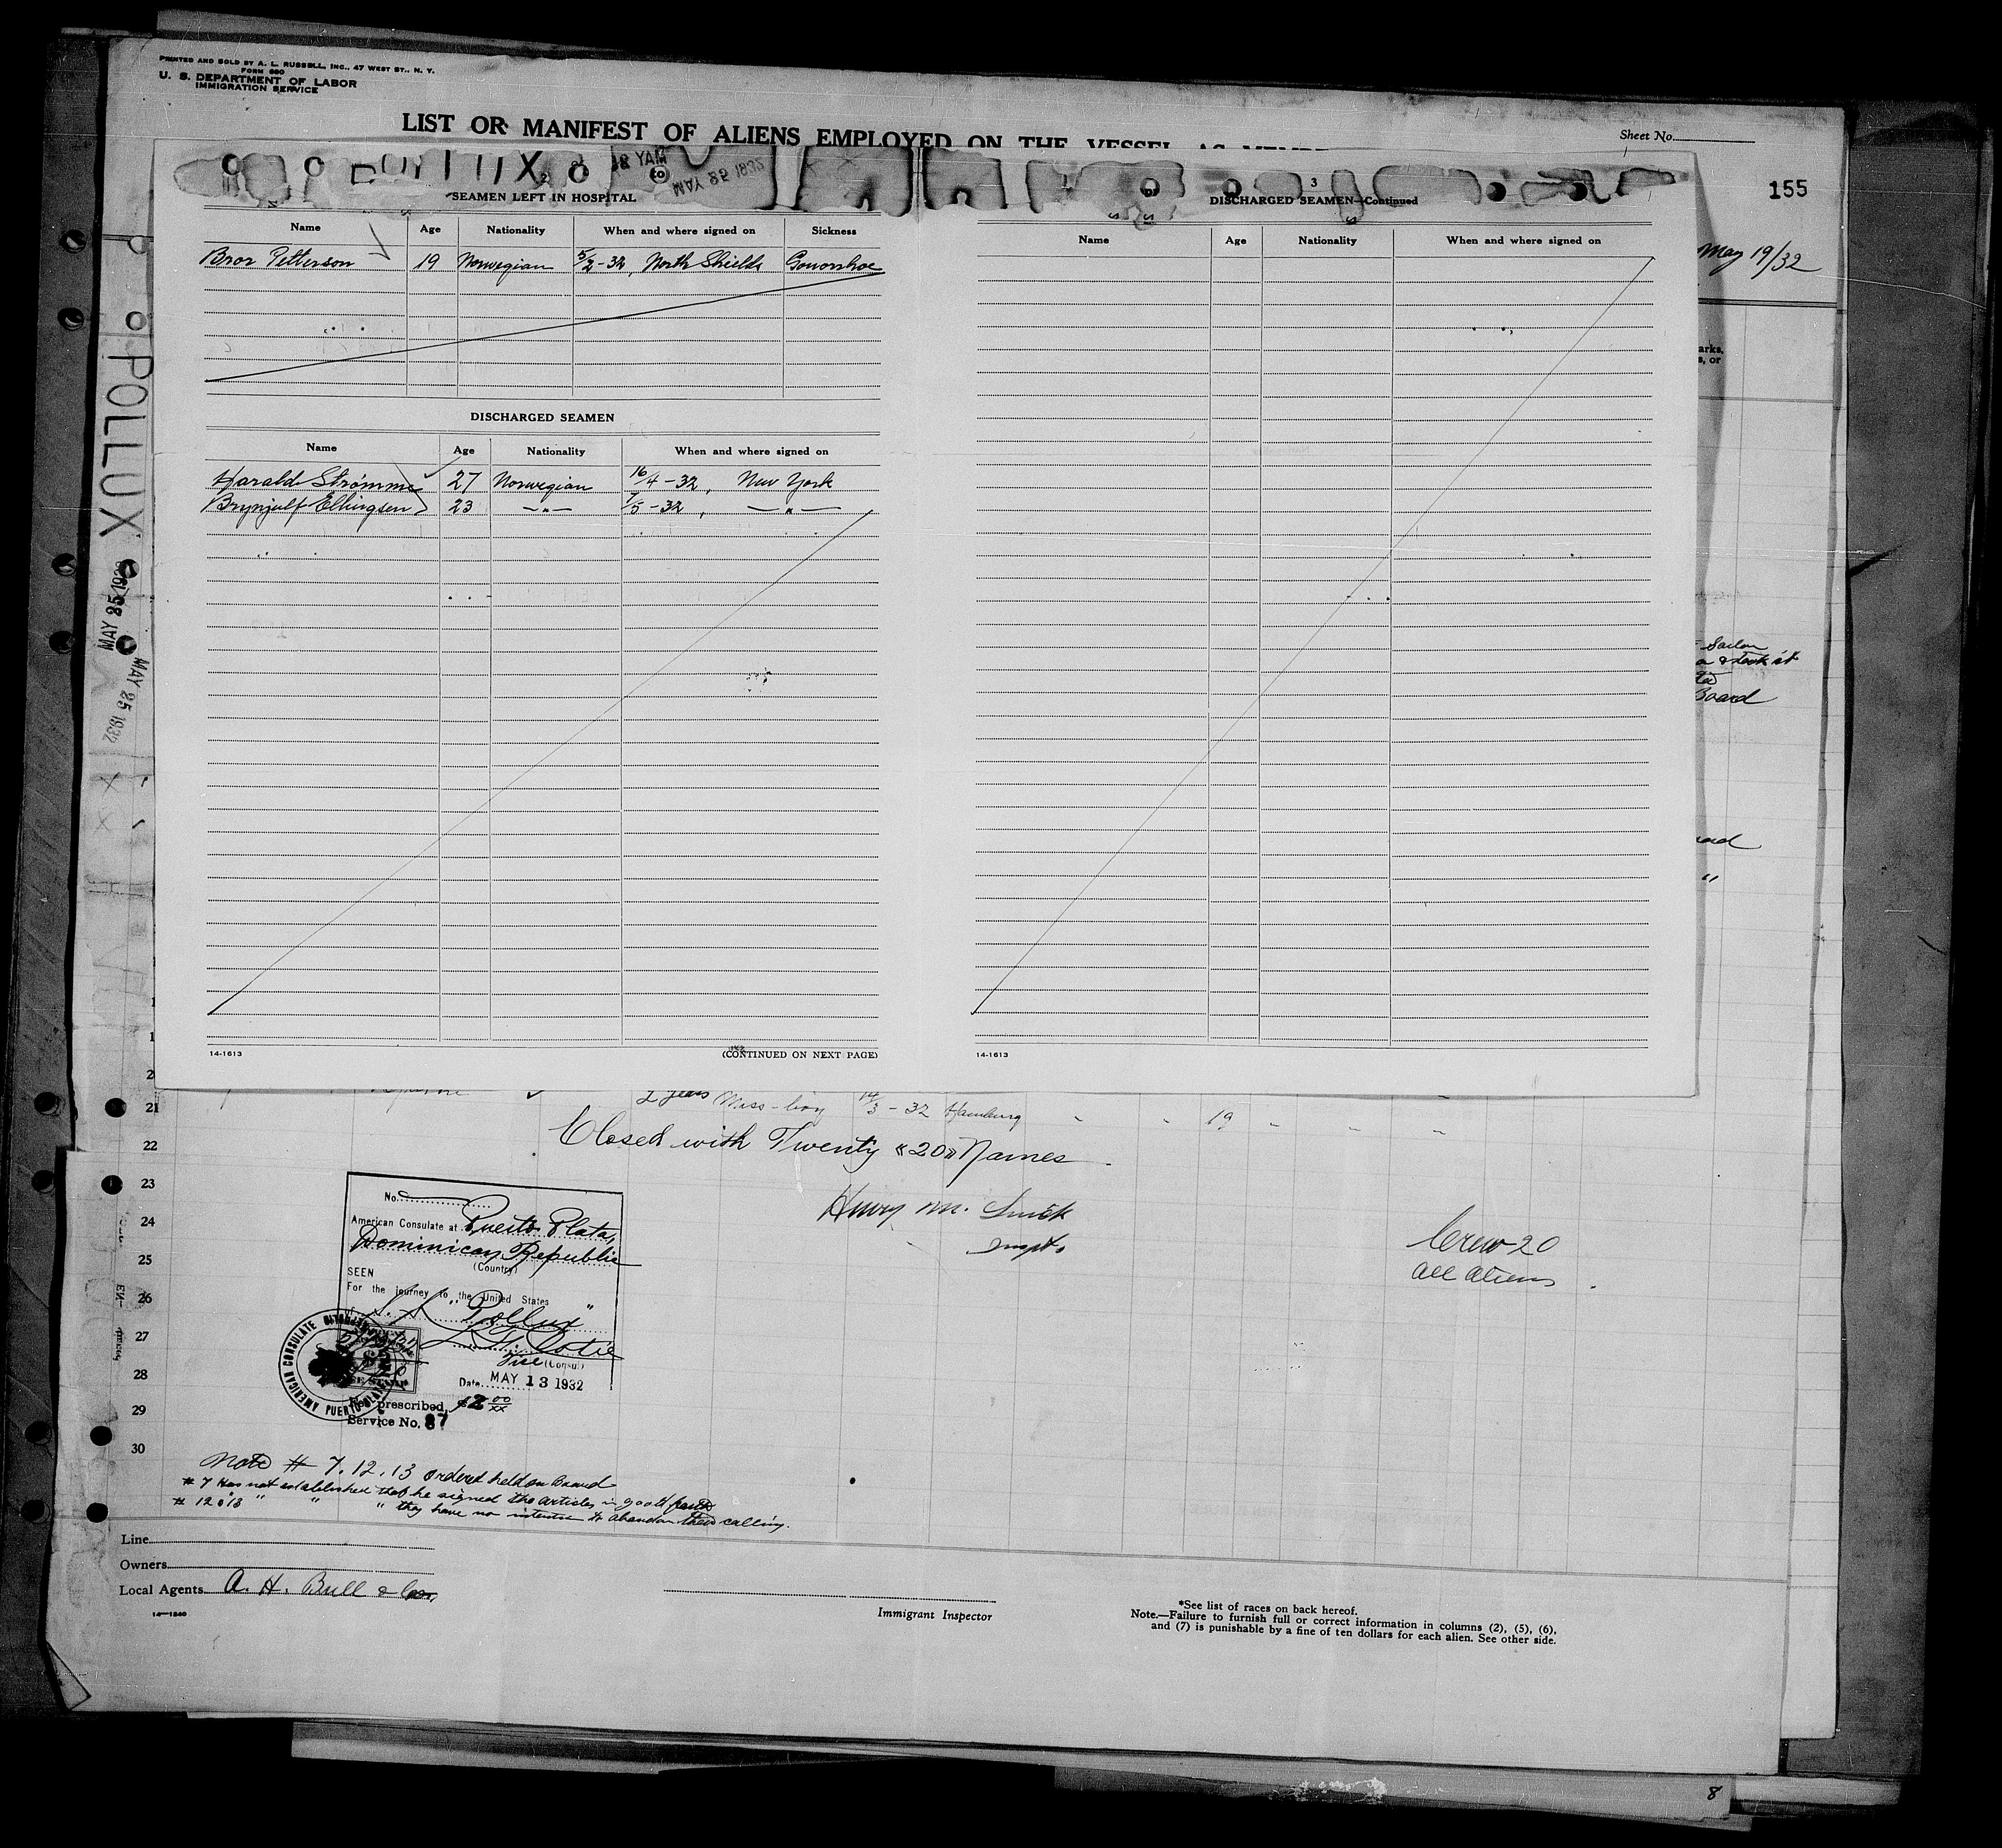 PRINTED AND SOLD BY A. L. RUSSELL, INC., 47 WEST ST., N. Y.
FORM 680
U. S. DEPARTMENT OF LABOR
IMMIGRATION SERVICE
LIST OR MANIFEST OF ALIENS EMPLOYED ON THE VESSEL AS
Sheet No.
155
May 19/32
POLLUX
MAY 25 1932
MAY 25 1932
MAY 25 1932
2
SEAMEN LEFT IN HOSPITAL
Name Age Nationality When and where signed on Sickness
Bror Petterson 19 Norwegian 5/2-32, North Shields Gonorrhoe
DISCHARGED SEAMEN
Name Age Nationality When and where signed on
Harald Strømme 27 Norwegian 16/4-32, New York
Brynjulf Ellingsen 23 —"— 7/5-32, —"—
14-1613
(CONTINUED ON NEXT PAGE)
3
DISCHARGED SEAMEN—Continued
Name Age Nationality When and where signed on
14-1613
arks,
s, or
Sailor
Board
21 2 years Mess-boy 14/3-32 Hamburg " " 19 " " "
22 Closed with Twenty "20" Names
23
24 Henry M. Smith
25 Inspt.
Crew 20
All aliens
26
27
28
29
30
No.
American Consulate at Puerto Plata,
Dominican Republic
(Country)
SEEN
For the journey to the United States
S. S. "Pollux"
Vice (Consul)
Date MAY 13 1932
AMERICAN CONSULATE
prescribed, $2 00/xx
Service No. 87
Note # 7, 12, 13 ordered held on board
# 7 Has not established that he signed the articles in good faith
# 12 & 13 " " " they have no intention to abandon their calling.
Line
Owners
Local Agents A. H. Bull & Co.
14—1240
Immigrant Inspector
*See list of races on back hereof.
Note.—Failure to furnish full or correct information in columns (2), (5), (6),
and (7) is punishable by a fine of ten dollars for each alien. See other side.
8